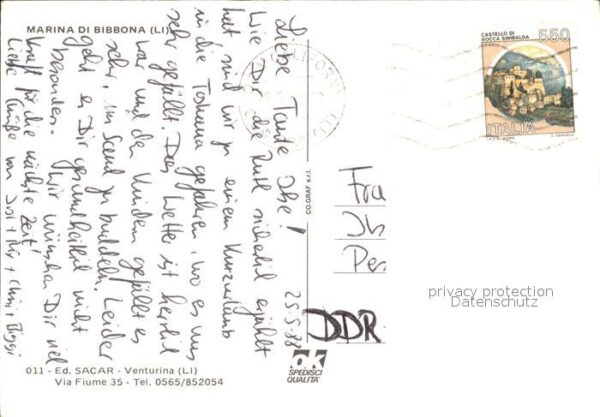 MARINA DI BIBBONA (LI)
25.5.88
Liebe Tante Ibe!
Wie Dir die Ruth sicherlich erzählt
hat sind wir zu einem Kurzurlaub
in die Toskana gefahren, wo es uns
sehr gefällt. Das Wetter ist herrlich
war und den Kindern gefällt es
sehr, im Sand zu buddeln. Leider
geht es Dir gesundheitlich nicht
besonders. Wir wünschen Dir viel
Kraft für die nächste Zeit!
Liebe Grüße von
CASTELLO DI
ROCCA SINIBALDA
550
ITALIA
CO.GRAF s.r.l.
Fra
Ib
Pe
DDR
privacy protection
Datenschutz
011 - Ed. SACAR - Venturina (LI)
Via Fiume 35 - Tel. 0565/852054
ok
SPEDISCI
QUALITÀ